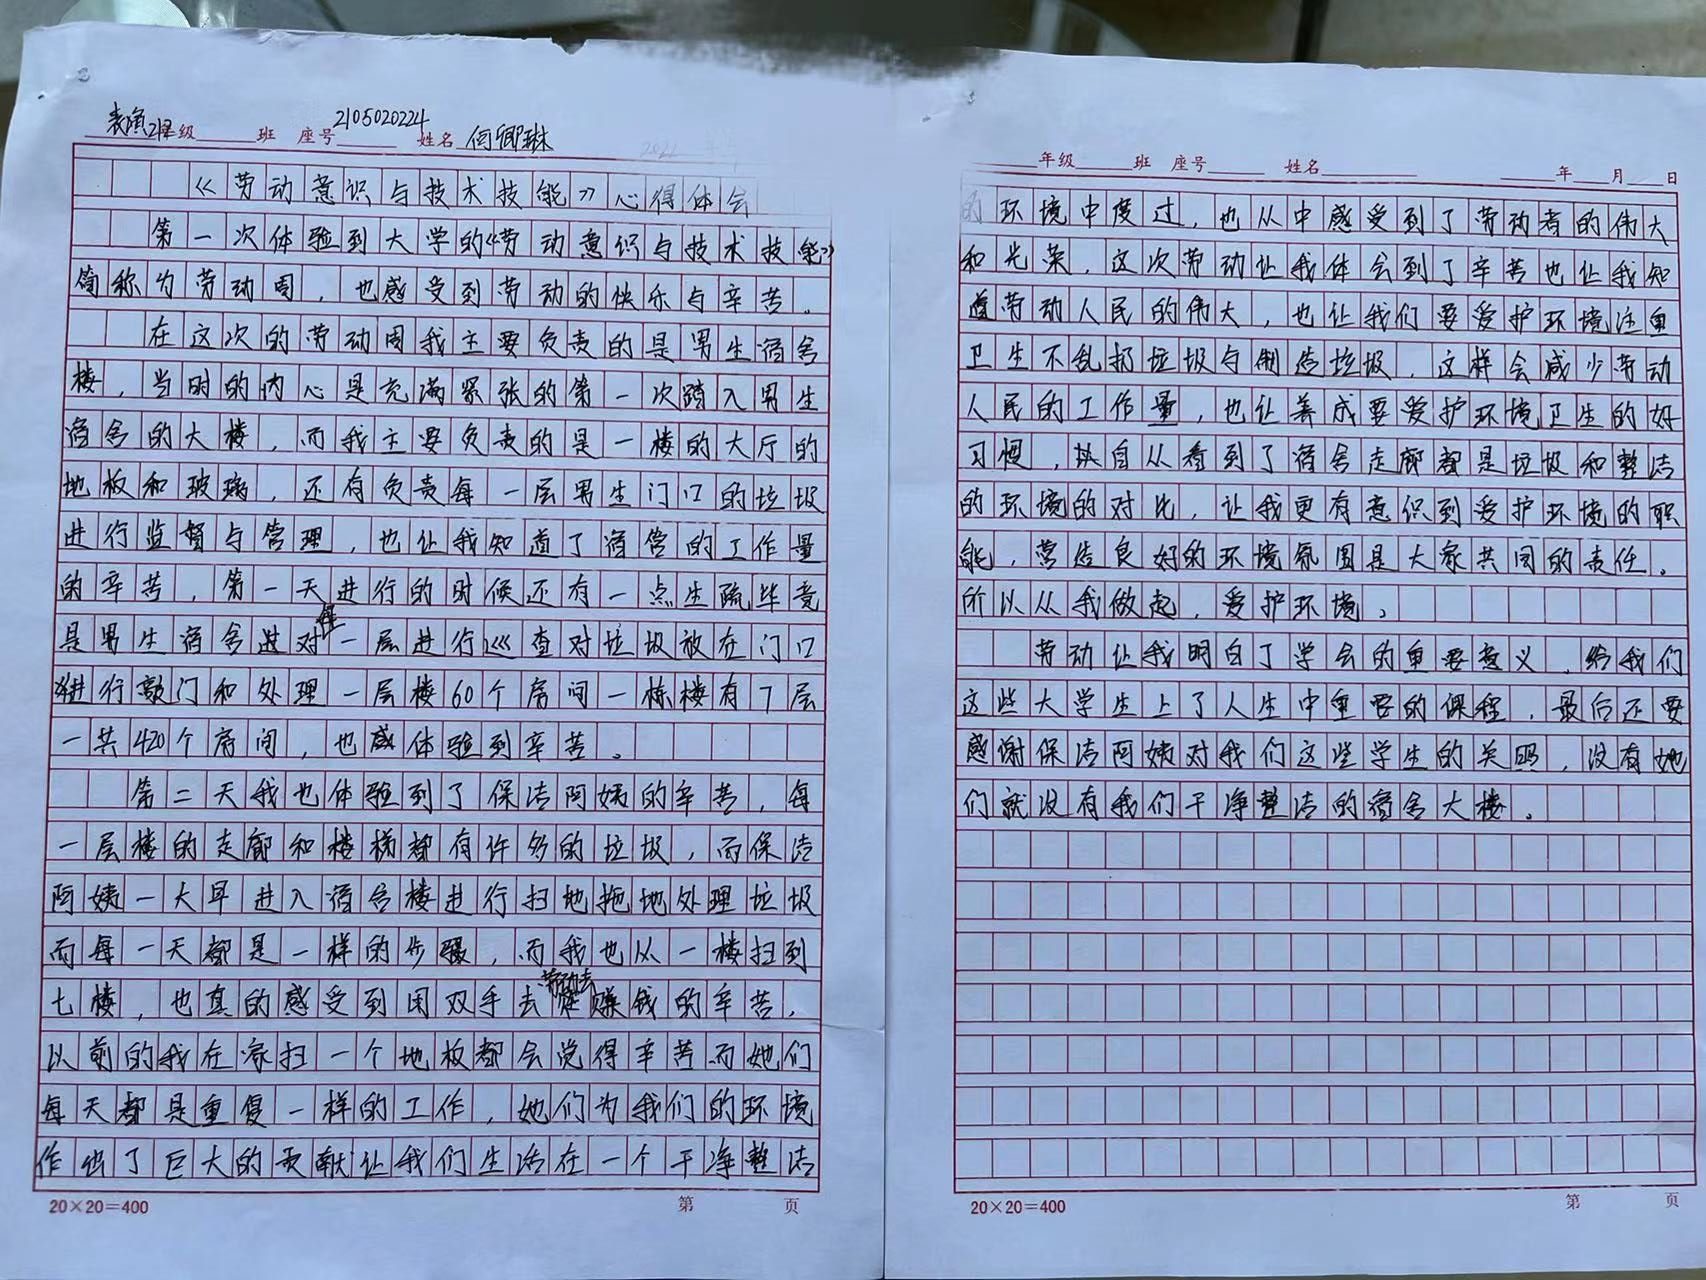 表演21级 班 座号 2105020224 姓名 闫卿琳
《劳动意识与技术技能》心得体会
第一次体验到大学的《劳动意识与技术技能》
简称为劳动周，也感受到劳动的快乐与辛苦。
在这次的劳动周我主要负责的是男生宿舍
楼，当时的内心是充满紧张的第一次踏入男生
宿舍的大楼，而我主要负责的是一楼的大厅的
地板和玻璃，还有负责每一层男生门口的垃圾
进行监督与管理，也让我知道了宿管的工作量
的辛苦，第一天进行的时候还有一点生疏毕竟
是男生宿舍进对每一层进行巡查对垃圾放在门口
进行敲门和处理一层楼60个房间一栋楼有7层
一共420个房间，也感体验到辛苦。
第二天我也体验到了保洁阿姨的辛苦，每
一层楼的走廊和楼梯都有许多的垃圾，而保洁
阿姨一大早进入宿舍楼进行扫地拖地处理垃圾
而每一天都是一样的步骤，而我也从一楼扫到
七楼，也真的感受到用双手去劳动去赚钱的辛苦，
以前的我在家扫一个地板都会觉得辛苦而她们
每天都是重复一样的工作，她们为我们的环境
作出了巨大的贡献让我们生活在一个干净整洁
20×20=400 第 页
年级 班 座号 姓名 年 月 日
的环境中度过，也从中感受到了劳动者的伟大
和光荣，这次劳动让我体会到了辛苦也让我知
道劳动人民的伟大，也让我们要爱护环境注重
卫生不乱扔垃圾与制造垃圾，这样会减少劳动
人民的工作量，也让养成要爱护环境卫生的好
习惯，执自从看到了宿舍走廊都是垃圾和整洁
的环境的对比，让我更有意识到爱护环境的职
能，营造良好的环境氛围是大家共同的责任。
所以从我做起，爱护环境。
劳动让我明白了学会的重要意义，给我们
这些大学生上了人生中重要的课程，最后还要
感谢保洁阿姨对我们这些学生的关照，没有她
们就没有我们干净整洁的宿舍大楼。
20×20=400 第 页